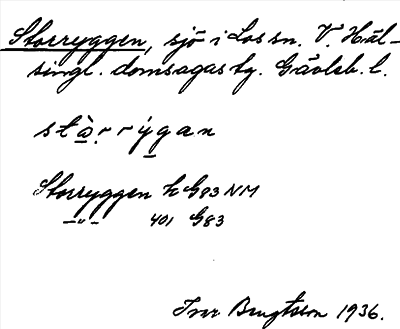 Storryggen, sjö i Los sn. V. Häl-
singl. domsagas tg. Gävleb. l.
stà̱ṛrýg̱an
Storryggen k G83 NM
—"— 401 G83
Ivar Bengtsson 1936.